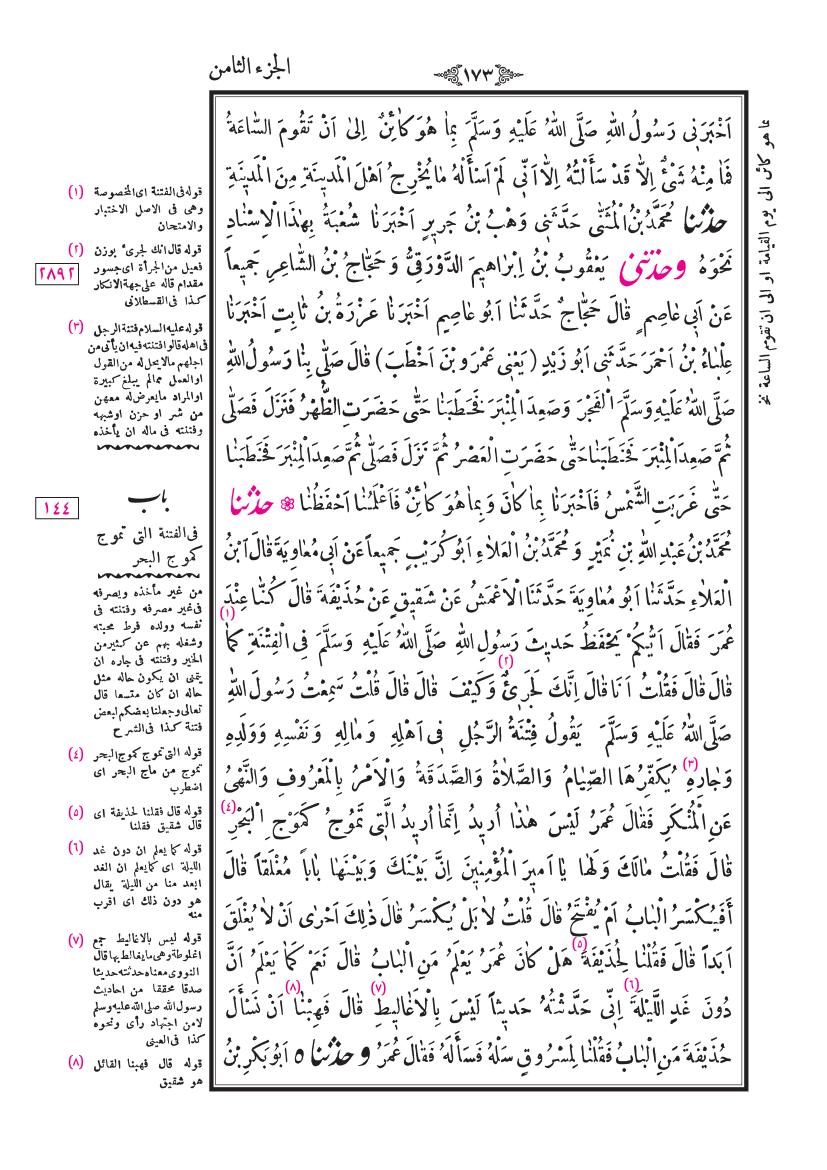 الجزء الثامن
١٧٣
اَخْبَرَنى رَسُولُ اللهِ صَلَّى اللهُ عَلَيْهِ وَسَلَّمَ بِما هُوَ كائِنٌ اِلىٰ اَنْ تَقُومَ السّاعَةُ
فَما مِنْهُ شَىْءٌ اِلّا قَدْ سَأَلْتُهُ اِلّا اَنّى لَمْ اَسْأَلْهُ ما يُخْرِجُ اَهْلَ الْمَدينَةِ مِنَ الْمَدينَةِ
حدّثنا مُحَمَّدُ بْنُ الْمُثَنّى حَدَّثَنى وَهْبُ بْنُ جَريرٍ اَخْبَرَنا شُعْبَةُ بِهٰذَا الْاِسْنادِ
نَحْوَهُ وحدّثنى يَعْقُوبُ بْنُ اِبْراهيمَ الدَّوْرَقِىُّ وَحَجّاجُ بْنُ الشّاعِرِ جَميعاً
عَنْ اَبى عاصِمٍ قالَ حَجّاجٌ حَدَّثَنا اَبُو عاصِمٍ اَخْبَرَنا عَزْرَةُ بْنُ ثابِتٍ اَخْبَرَنا
عِلْباءُ بْنُ اَحْمَرَ حَدَّثَنى اَبُو زَيْدٍ (يَعْنى عَمْرَو بْنَ اَخْطَبَ) قالَ صَلّى بِنا رَسُولُ اللهِ
صَلَّى اللهُ عَلَيْهِ وَسَلَّمَ الْفَجْرَ وَصَعِدَ الْمِنْبَرَ فَخَطَبَنا حَتّى حَضَرَتِ الظُّهْرُ فَنَزَلَ فَصَلّى
ثُمَّ صَعِدَ الْمِنْبَرَ فَخَطَبَنا حَتّى حَضَرَتِ الْعَصْرُ ثُمَّ نَزَلَ فَصَلّى ثُمَّ صَعِدَ الْمِنْبَرَ فَخَطَبَنا
حَتّى غَرَبَتِ الشَّمْسُ فَاَخْبَرَنا بِما كانَ وَبِما هُوَ كائِنٌ فَاَعْلَمُنا اَحْفَظُنا ❀ حدّثنا
مُحَمَّدُ بْنُ عَبْدِ اللهِ بْنِ نُمَيْرٍ وَمُحَمَّدُ بْنُ الْعَلاءِ اَبُو كُرَيْبٍ جَميعاً عَنْ اَبى مُعاوِيَةَ قالَ ابْنُ
الْعَلاءِ حَدَّثَنا اَبُو مُعاوِيَةَ حَدَّثَنَا الْاَعْمَشُ عَنْ شَقيقٍ عَنْ حُذَيْفَةَ قالَ كُنّا عِنْدَ
عُمَرَ فَقالَ اَيُّكُمْ يَحْفَظُ حَديثَ رَسُولِ اللهِ صَلَّى اللهُ عَلَيْهِ وَسَلَّمَ فِى الْفِتْنَةِ (١) كَما
قالَ قالَ فَقُلْتُ اَنَا قالَ اِنَّكَ لَجَرىءٌ (٢) وَكَيْفَ قالَ قالَ قُلْتُ سَمِعْتُ رَسُولَ اللهِ
صَلَّى اللهُ عَلَيْهِ وَسَلَّمَ يَقُولُ فِتْنَةُ الرَّجُلِ فى اَهْلِهِ وَمالِهِ وَنَفْسِهِ وَوَلَدِهِ
وَجارِهِ (٣) يُكَفِّرُهَا الصِّيامُ وَالصَّلاةُ وَالصَّدَقَةُ وَالْاَمْرُ بِالْمَعْرُوفِ وَالنَّهْىُ
عَنِ الْمُنْكَرِ فَقالَ عُمَرُ لَيْسَ هٰذا اُريدُ اِنَّما اُريدُ الَّتى تَمُوجُ كَمَوْجِ الْبَحْرِ (٤)
قالَ فَقُلْتُ مالَكَ وَلَها يا اَميرَ الْمُؤْمِنينَ اِنَّ بَيْنَكَ وَبَيْنَها باباً مُغْلَقاً قالَ
أَفَيُكْسَرُ الْبابُ اَمْ يُفْتَحُ قالَ قُلْتُ لا بَلْ يُكْسَرُ قالَ ذٰلِكَ اَحْرىٰ اَنْ لا يُغْلَقَ
اَبَداً قالَ فَقُلْنا لِحُذَيْفَةَ (٥) هَلْ كانَ عُمَرُ يَعْلَمُ مَنِ الْبابُ قالَ نَعَمْ كَما يَعْلَمُ اَنَّ
دُونَ غَدٍ اللَّيْلَةَ (٦) اِنّى حَدَّثْتُهُ حَديثاً لَيْسَ بِالْاَغاليطِ (٧) قالَ فَهِبْنا (٨) اَنْ نَسْأَلَ
حُذَيْفَةَ مَنِ الْبابُ فَقُلْنا لِمَسْرُوقٍ سَلْهُ فَسَأَلَهُ فَقالَ عُمَرُ وحدّثنا ٥ اَبُو بَكْرِ بْنُ
بما هو كائن الى يوم القيامة او الى ان تقوم الساعة نخ
(١) قوله فى الفتنة اى المخصوصة
وهى فى الاصل الاختبار
والامتحان
(٢) قوله قال انك لجرىء بوزن
فعيل من الجرأة اى جسور
مقدام قاله على جهة الانكار
كذا فى القسطلانى
٢٨٩٢
(٣) قوله عليه السلام فتنة الرجل
فى اهله قالوا فتنته فيه ان يأتى من
اجلهم مالا يحل له من القول
او العمل ممالم يبلغ كبيرة
او المراد ما يعرض له معهن
من شر او حزن او شبهه
وفتنته فى ماله ان يأخذه
باب
١٤٤
فى الفتنة التى تموج
كموج البحر
من غير مأخذه ويصرفه
فى غير مصرفه وفتنته فى
نفسه وولده فرط محبته
وشغله بهم عن كثير من
الخير وفتنته فى جاره ان
يتمنى ان يكون حاله مثل
حاله ان كان متسعا قال
تعالى وجعلنا بعضكم لبعض
فتنة كذا فى الشرح
(٤) قوله التى تموج كموج البحر
تموج من ماج البحر اى
اضطرب
(٥) قوله قال فقلنا لحذيفة اى
قال شقيق فقلنا
(٦) قوله كما يعلم ان دون غد
الليلة اى كما يعلم ان الغد
ابعد منا من الليلة يقال
هو دون ذلك اى اقرب
منه
(٧) قوله ليس بالاغاليط جمع
اغلوطة وهى ما يغالط بها قال
النووى معناه حدثته حديثا
صدقا محققا من احاديث
رسول الله صلى الله عليه وسلم
لا من اجتهاد رأى ونحوه
كذا فى العينى
(٨) قوله قال فهبنا القائل
هو شقيق